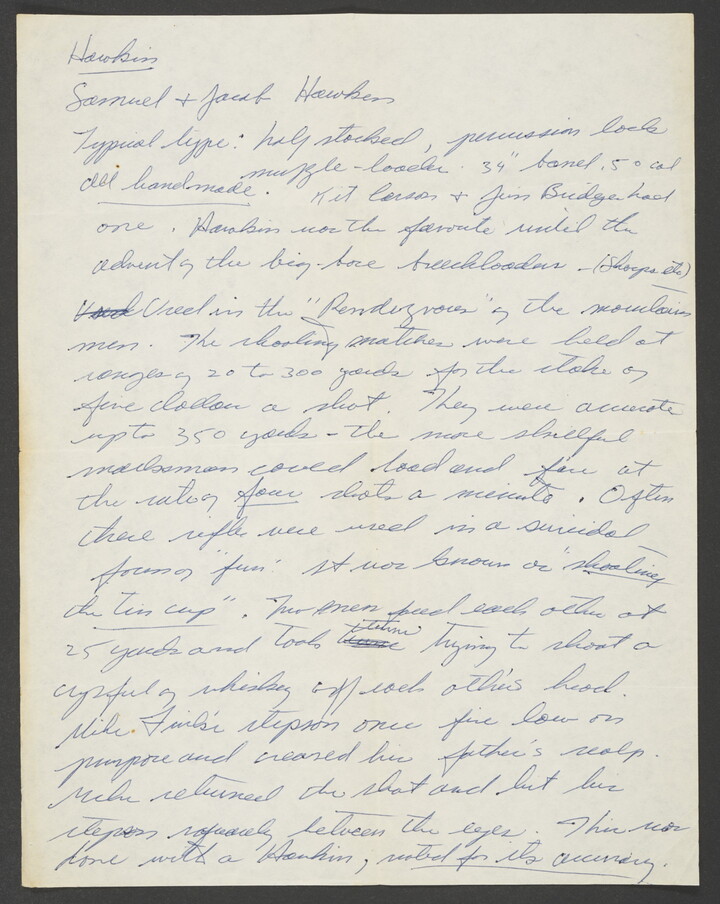 Hawkins
Samuel + Jacob Hawkens
Typical type: half stocked, percussion lock
muzzle-loader. 34" barrel, 50 cal
all handmade. Kit Carson + Jim Bridger had
one. Hawkins was the favorite until the
advent of the big-bore breechloaders - (Sharps etc)
Used Used in the "Rendezvous" of the mountain
men. The shooting matches were held at
ranges of 20 to 300 yards for the stake of
five dollars a shot. They were accurate
up to 350 yards - the more skillful
marksman could load and fire at
the rate of four shots a minute. Often
these rifles were used in a suicidal
form of "fun". It was known as "shooting
the tin cup". Two men faced each other at
25 yards and took turns trying to shoot a
cupful of whiskey off each other's head.
Mike Fink's stepson once fire low on
purpose and creased his father's scalp.
Mike returned the shot and hit his
stepson squarely between the eyes. This was
done with a Hawkin, noted for its accuracy.